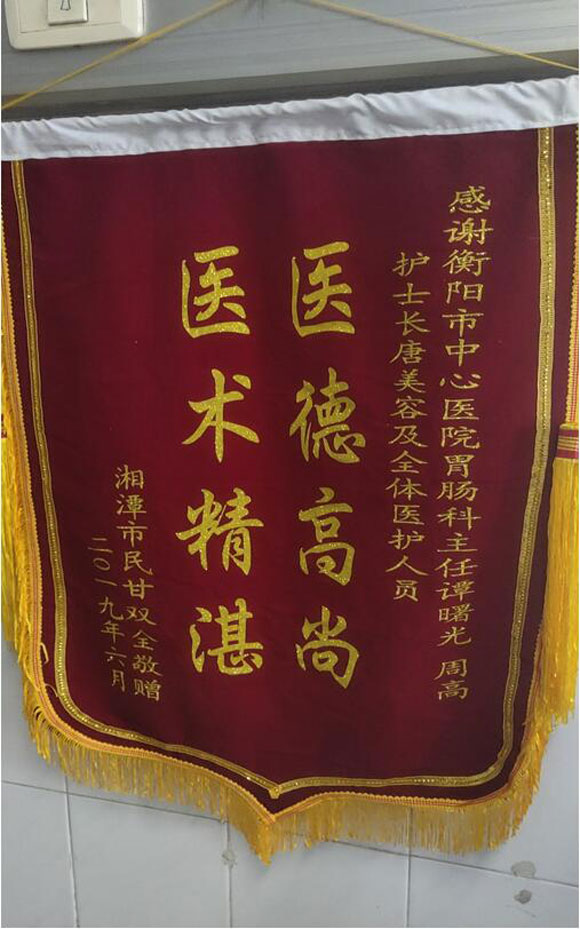 感谢衡阳市中心医院胃肠科主任谭曙光 周高
护士长唐美容及全体医护人员
医德高尚
医术精湛
湘潭市民甘双全敬赠
二〇一九年六月